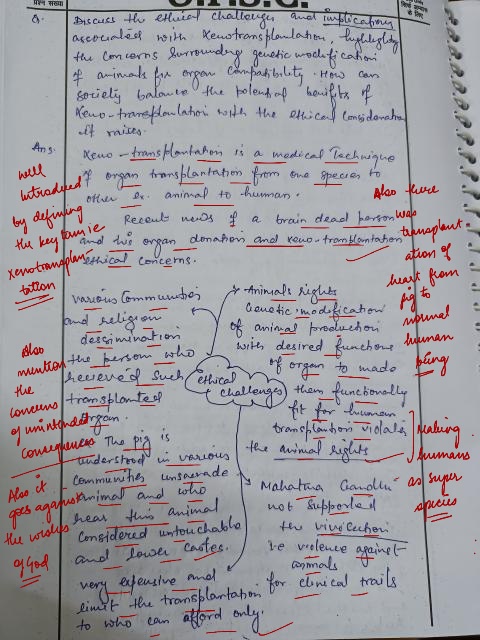 प्रश्न संख्या
Q. Discuss the ethical challenges and implications
associated with Xenotransplantation, highlighting
the concerns surrounding genetic modification
of animals for organ compatibility. How can
society balance the potential benifits of
Xeno-transplantation with the ethical consideration
it raises.
Ans. Xeno-transplantation is a medical Technique
of organ transplantation from one species to
other ex. animal to human.
Recent news of a brain dead person
and his organ donation and xeno-transplantation
ethical concerns.
well
introduced
by defining
the key term ie
xenotransplan
tation
Also there
was
transplant
ation of
heart from
pig to
normal
human
being
ethical
challenges
Animals rights
Genetic modification
of animal production
with desired functions
of organ to made
them functionally
fit for human
transplantion violates
the animal rights
Making
humans
as super
species
Mahatma Gandhi
not supported
the vivocection
i.e violence against
animals
for clinical trails
various Communities
and religion
dessimination
the person who
recieved such
transplanted
organ.
The pig is
understood in various
communities unsacrade
animal and who
hear this animal
considered untouchable
and lower castes.
very expensive and
limit the transplantation
to who can afford only.
Also
mention
the
concerns
of unintended
consequences
Also it
goes against
the wishes
of God